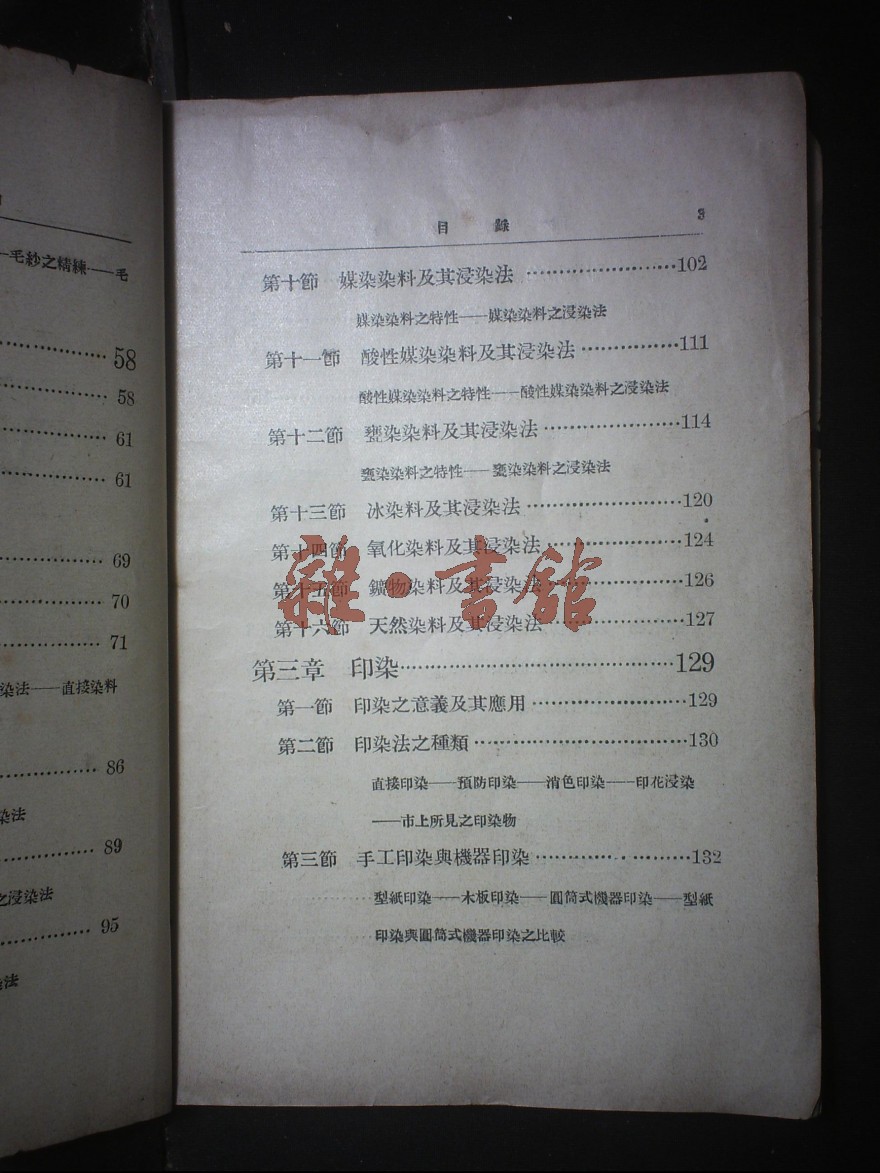 毛紗之精練——毛
58
58
61
61
69
70
71
染法——直接染料
86
染法
89
之浸染法
95
法
目錄 3
第十節 媒染染料及其浸染法 ……………………102
媒染染料之特性——媒染染料之浸染法
第十一節 酸性媒染染料及其浸染法 ……………111
酸性媒染染料之特性——酸性媒染染料之浸染法
第十二節 甕染染料及其浸染法 …………………114
甕染染料之特性——甕染染料之浸染法
第十三節 冰染料及其浸染法 ……………………120
第十四節 氧化染料及其浸染法 …………………124
第十五節 鑛物染料及其浸染法 …………………126
第十六節 天然染料及其浸染法 …………………127
雜·書館
第三章 印染……………………………………129
第一節 印染之意義及其應用 ……………………129
第二節 印染法之種類 ……………………………130
直接印染——預防印染——消色印染——印花浸染
——市上所見之印染物
第三節 手工印染與機器印染 ……………………132
型紙印染——木板印染——圓筒式機器印染——型紙
印染與圓筒式機器印染之比較